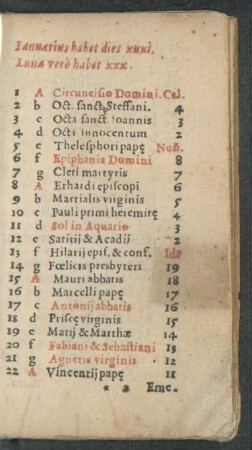 Ianuarius habet dies xxxi.
Luna verò habet xxx.
1 A Circuncisio Domini. Cal.
2 b Oct. sancti Steffani. 4
3 c Octa sancti Ioannis 3
4 d Octa innocentum 2
5 e Thelesphori papę Non.
6 f Epiphania Domini 8
7 g Cleri martyris 7
8 A Erhardi episcopi 6
9 b Martialis virginis 5
10 c Pauli primi heremitę 4
11 d Sol in Aquario 3
12 e Satirij & Acadij 2
13 f Hilarij epis. & conf. Idus
14 g Fœlicis presbyteri 19
15 A Mauri abbatis 18
16 b Marcelli papę 17
17 c Antonij abbatis 16
18 d Priscę virginis 15
19 e Marij & Marthæ 14
20 f Fabiani & Sebastiani 13
21 g Agnetis virginis 12
22 A Vincentij papę 11
Eme.